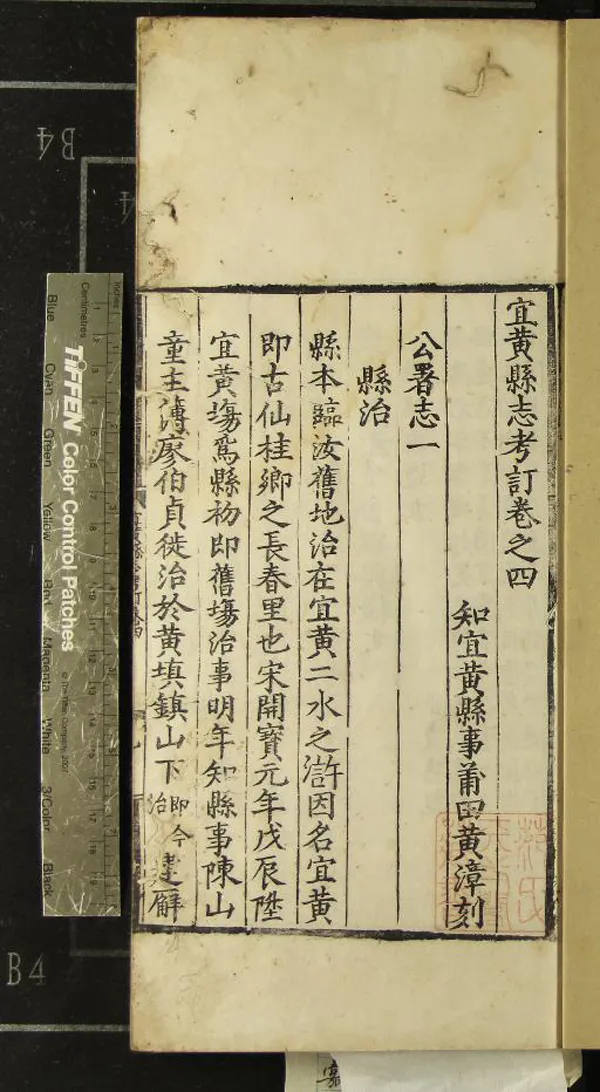 宜黃縣志考訂卷之四
知宜黃縣事莆田黃漳刻
公署志一
縣治
縣本臨汝舊地治在宜黃二水之滸因名宜黃
即古仙桂鄉之長春里也宋開寶元年戊辰陞
宜黃塲爲縣初即舊塲治事明年知縣事陳山
童主傅廖伯貞徙治於黃填鎮山下即今治建廨
B4
B4
4
Inches
Centimetres
TIFFEN Color Control Patches
© The Tiffen Company, 2007
Blue
Cyan
Green
Yellow
Red
Magenta
White
3/Color
Black